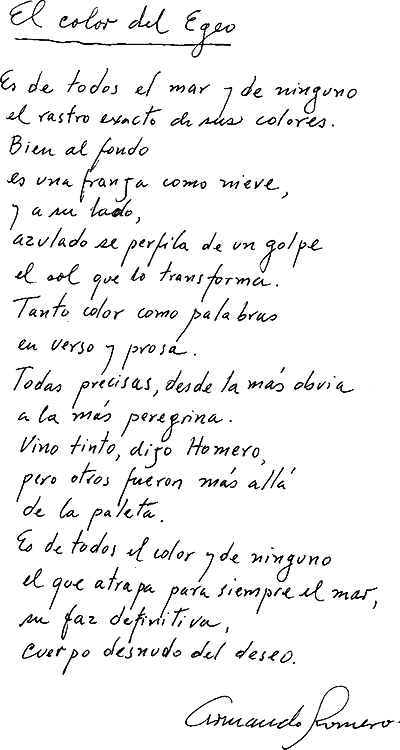 El color del Egeo
Es de todos el mar y de ninguno
el rastro exacto de sus colores.
Bien al fondo
es una franja como nieve,
y a su lado,
azulado se perfila de un golpe
el sol que lo transforma.
Tanto color como palabras
en verso y prosa.
Todas precisas, desde la más obvia
a la más peregrina.
Vino tinto, dijo Homero,
pero otros fueron más allá
de la paleta.
Es de todos el color y de ninguno
el que atrapa para siempre el mar,
su faz definitiva,
cuerpo desnudo del deseo.
Armando Romero